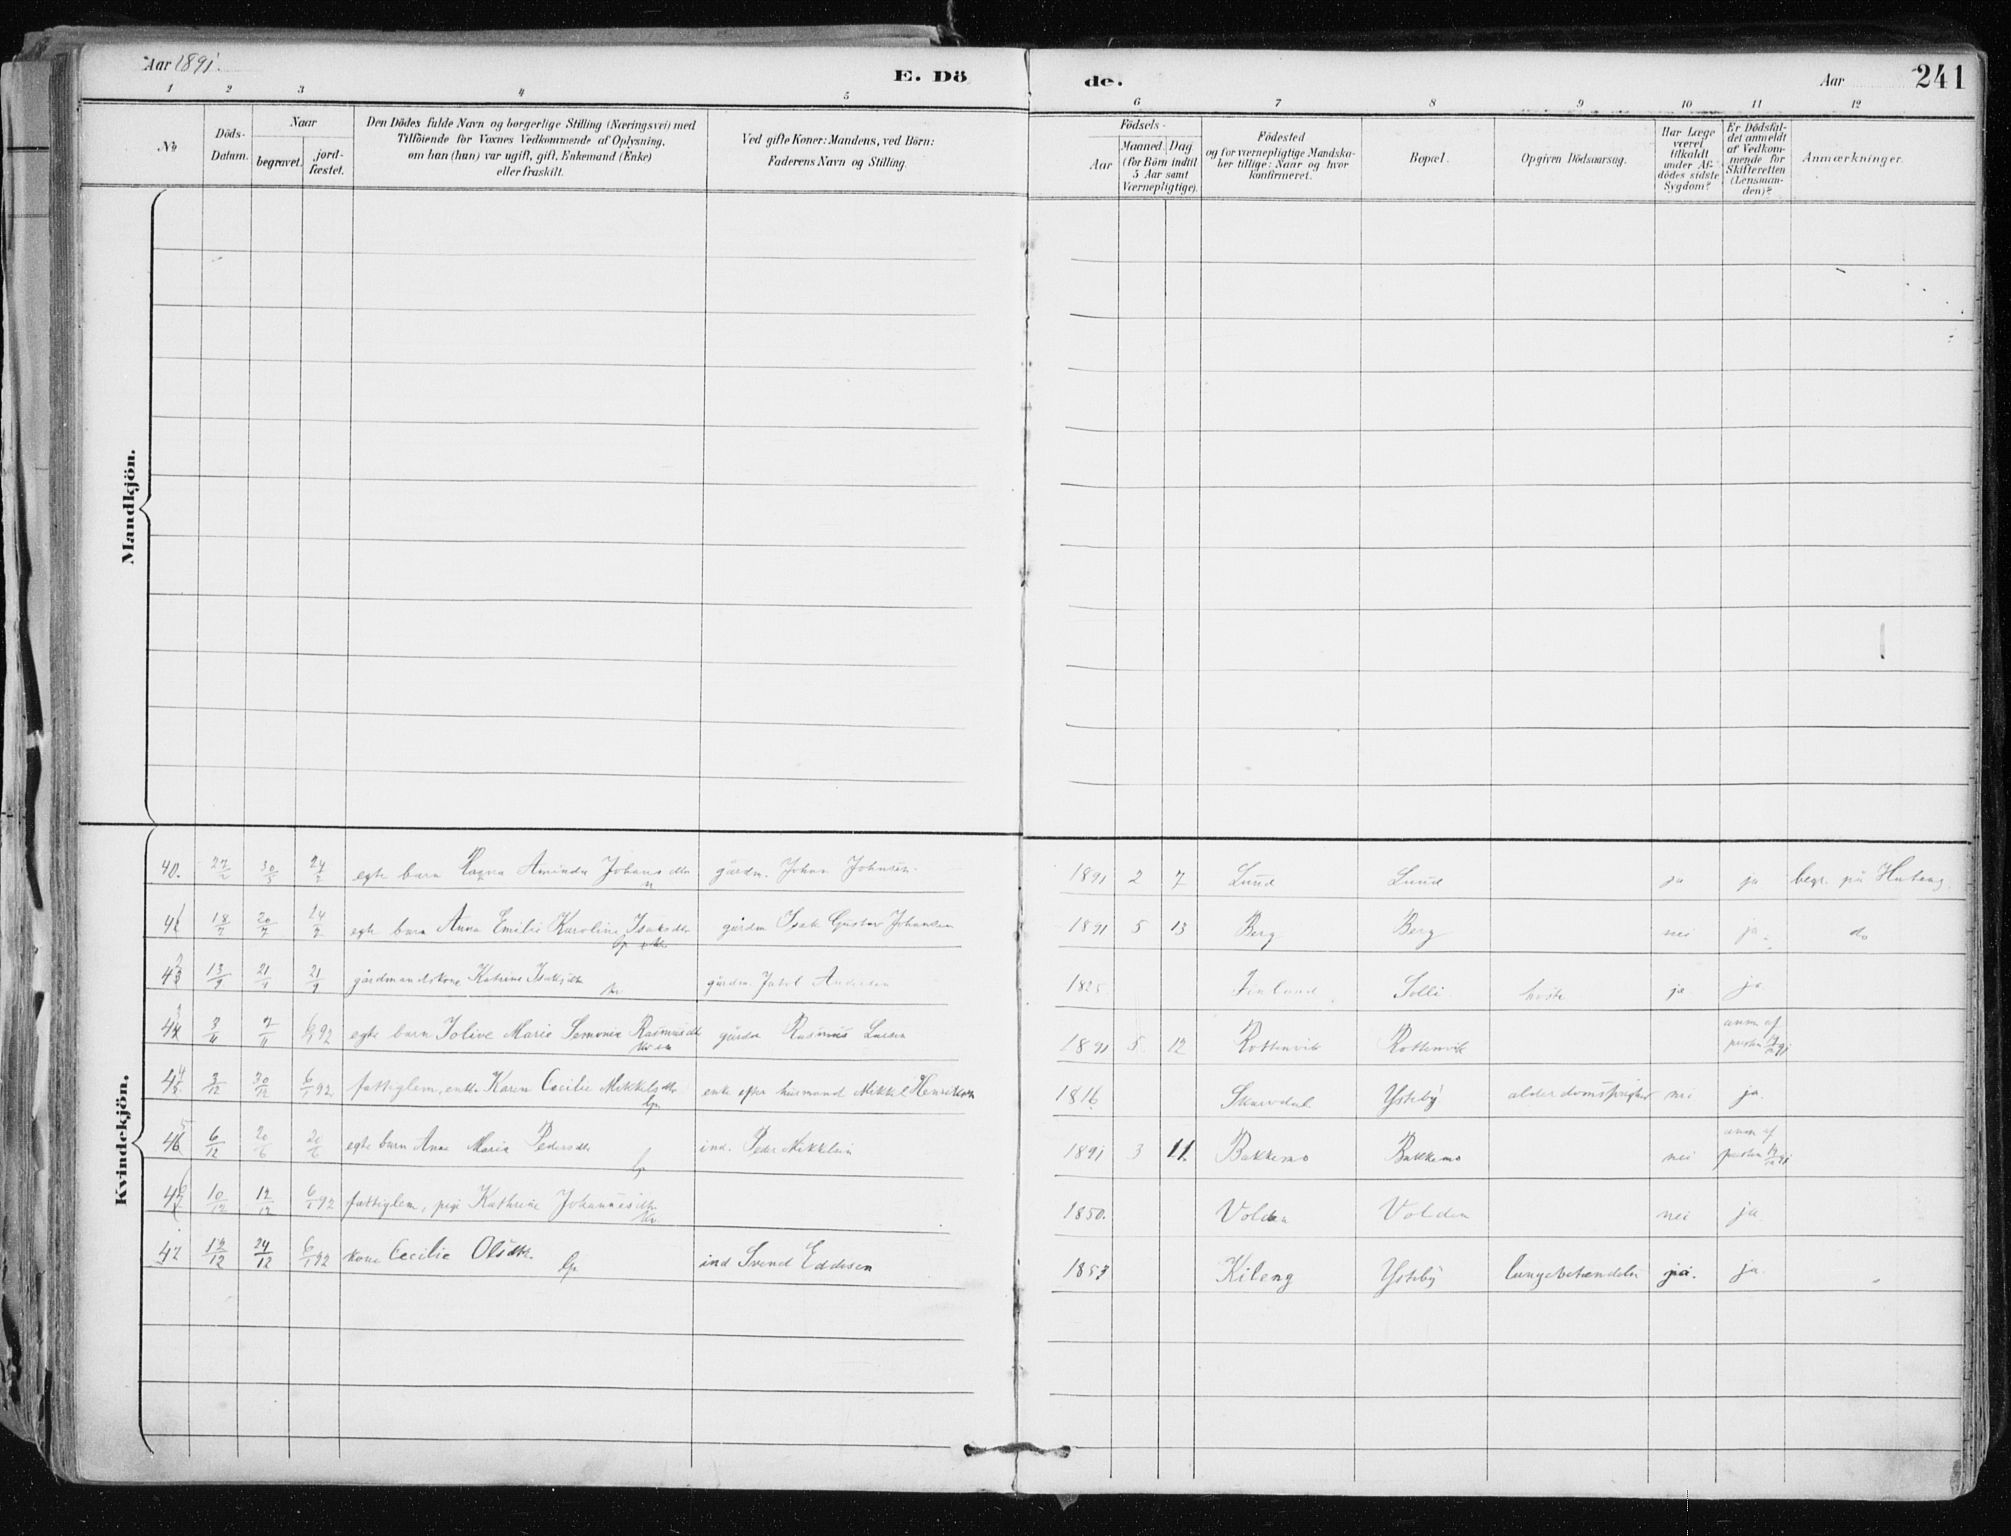 Aar 1891.
E. Dö
de.
Aar
241
1 2 3 4 5 6 7 8 9 10 11 12
No
Döds-Datum.
Naar
begravet.
jord-fæstet.
Den Dödes fulde Navn og borgerlige Stilling (Næringsvei) med
Tilföiende for Voxnes Vedkommende af Oplysning,
om han (hun) var ugift, gift, Enkemand (Enke)
eller fraskilt.
Ved gifte Koner: Mandens, ved Börn:
Faderens Navn og Stilling.
Födsels-
Aar
Maaned. Dag
(for Börn indtil
5 Aar samt
Værnepligtige).
Födested
og for værnepligtige Mandska-
ber tillige: Naar og hvor
konfirmeret.
Bopæl.
Opgiven Dödsaarsag.
Har Læge
været
tilkaldt
under Af-
dödes sidste
Sygdom?
Er Dödsfal-
det anmeldt
af Vedkom-
mende for
Skifteretten
(Lensman-
den)?
Anmærkninger.
Mandkjön.
Kvindekjön.
40. egte barn Ragna Aminda Johans dtr gårdm. Johan Johnsen 1891 2 7 Lund Lund ja ja begr. på
41 18/7 20/7 egte barn Anna Emilie Karoline Isaksdtr gårdm Isak Gustav Johansen 1891 5 13 Berg Berg nei ja do
42 13/9 21/9 21/9 gårdmandskone Katrine Isaksdtr gårdm. Andersen 1825 Finland Solli hoste ja ja
43 3/11 7/11 6/1 92 egte barn Jolive Marie Rasmusdtr gårdm Rasmus Larsen 1891 5 12 Rottenvik Rottenvik anm af presten
44 3/12 30/12 6/1 92 fattiglem, enke Karen Cecilie Mikkelsdtr enke efter husmand Mikkel Henriksen 1816 Skarvdal Ysteby nei ja
45 6/12 20/6 20/6 egte barn Anna Maria Pedersdtr ind. Peder Mikkelsen 1891 3 11 Bakkemo Bakkemo nei anm af presten
46 10/12 12/12 6/1 92 fattiglem, pige Kathrine Johannesdtr 1850. Volden Volden nei ja
47 24/12 6/1 92 kone Cecilie Olsdtr. ind Svend Eddesen 1853 Kileng Ysteby lungebetændelse ja. ja.